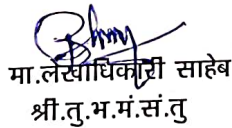 मा.लेखाधिकारी साहेब
श्री.तु.भ.मं.सं.तु